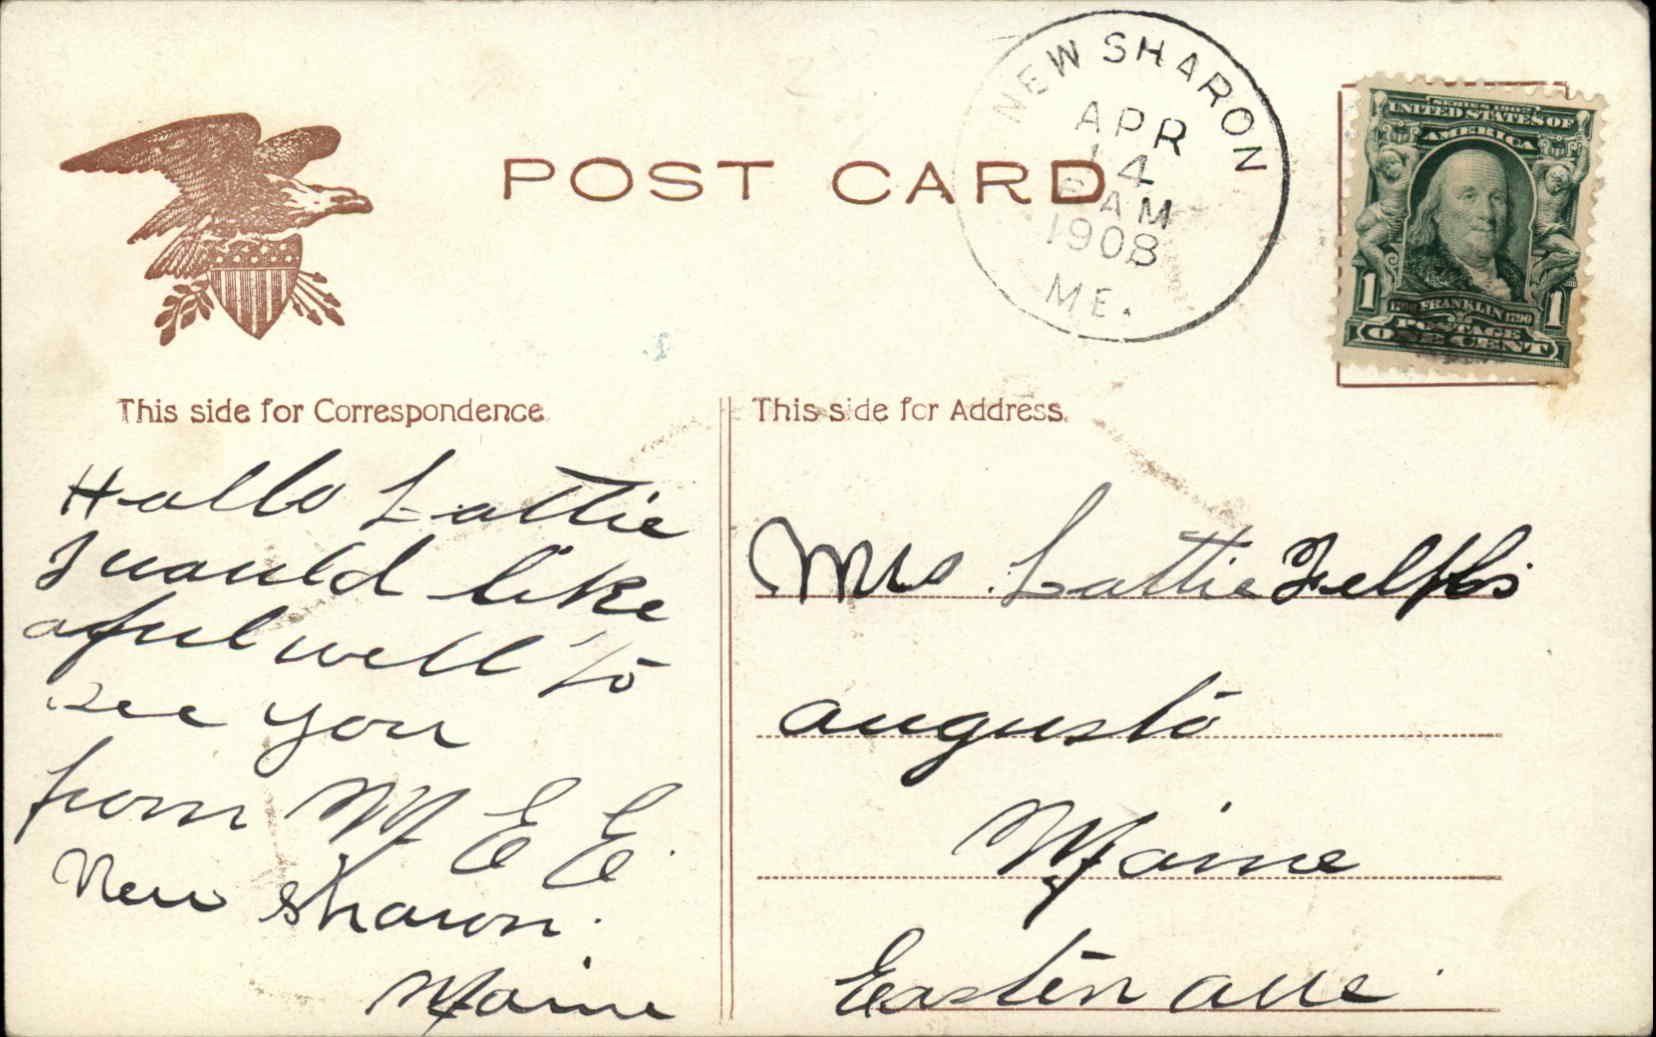 POST CARD
NEW SHARON
APR
14
AM
1908
ME.
SERIES 1902
UNITED STATES OF
AMERICA
1 FRANKLIN 1790 1
POSTAGE
ONE CENT
This side for Correspondence.
Hallo Lattie
I would like
aful well to
see you
from M E E.
New Sharon.
Maine
This side for Address.
Mrs. Lattie
Augusta
Maine
Eastern Ave.